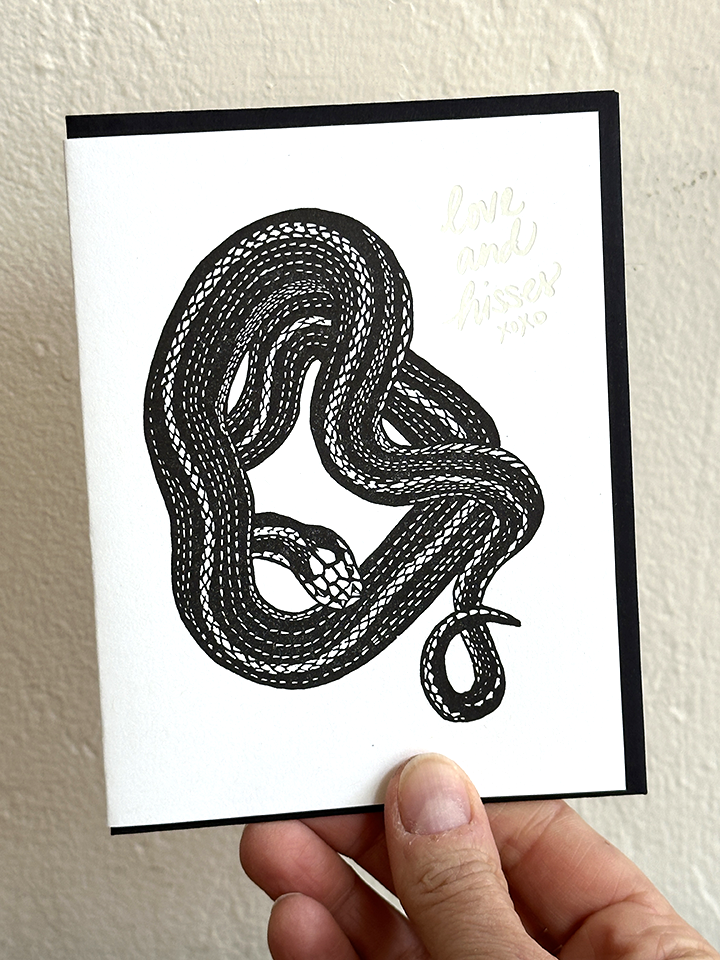 love
and
hisses
xoxo